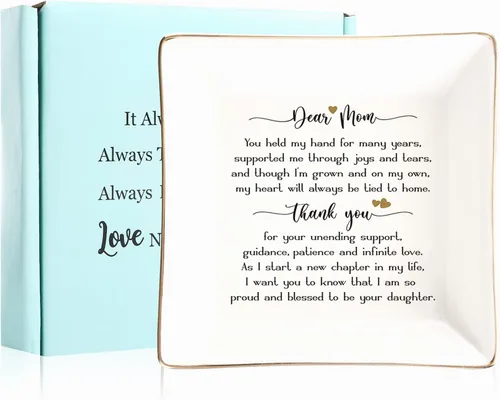 It
Always
Always
Love
Dear Mom
You held my hand for many years,
supported me through joys and tears,
and though I'm grown and on my own,
my heart will always be tied to home.
Thank you
for your unending support,
guidance, patience and infinite love.
As I start a new chapter in my life,
I want you to know that I am so
proud and blessed to be your daughter.